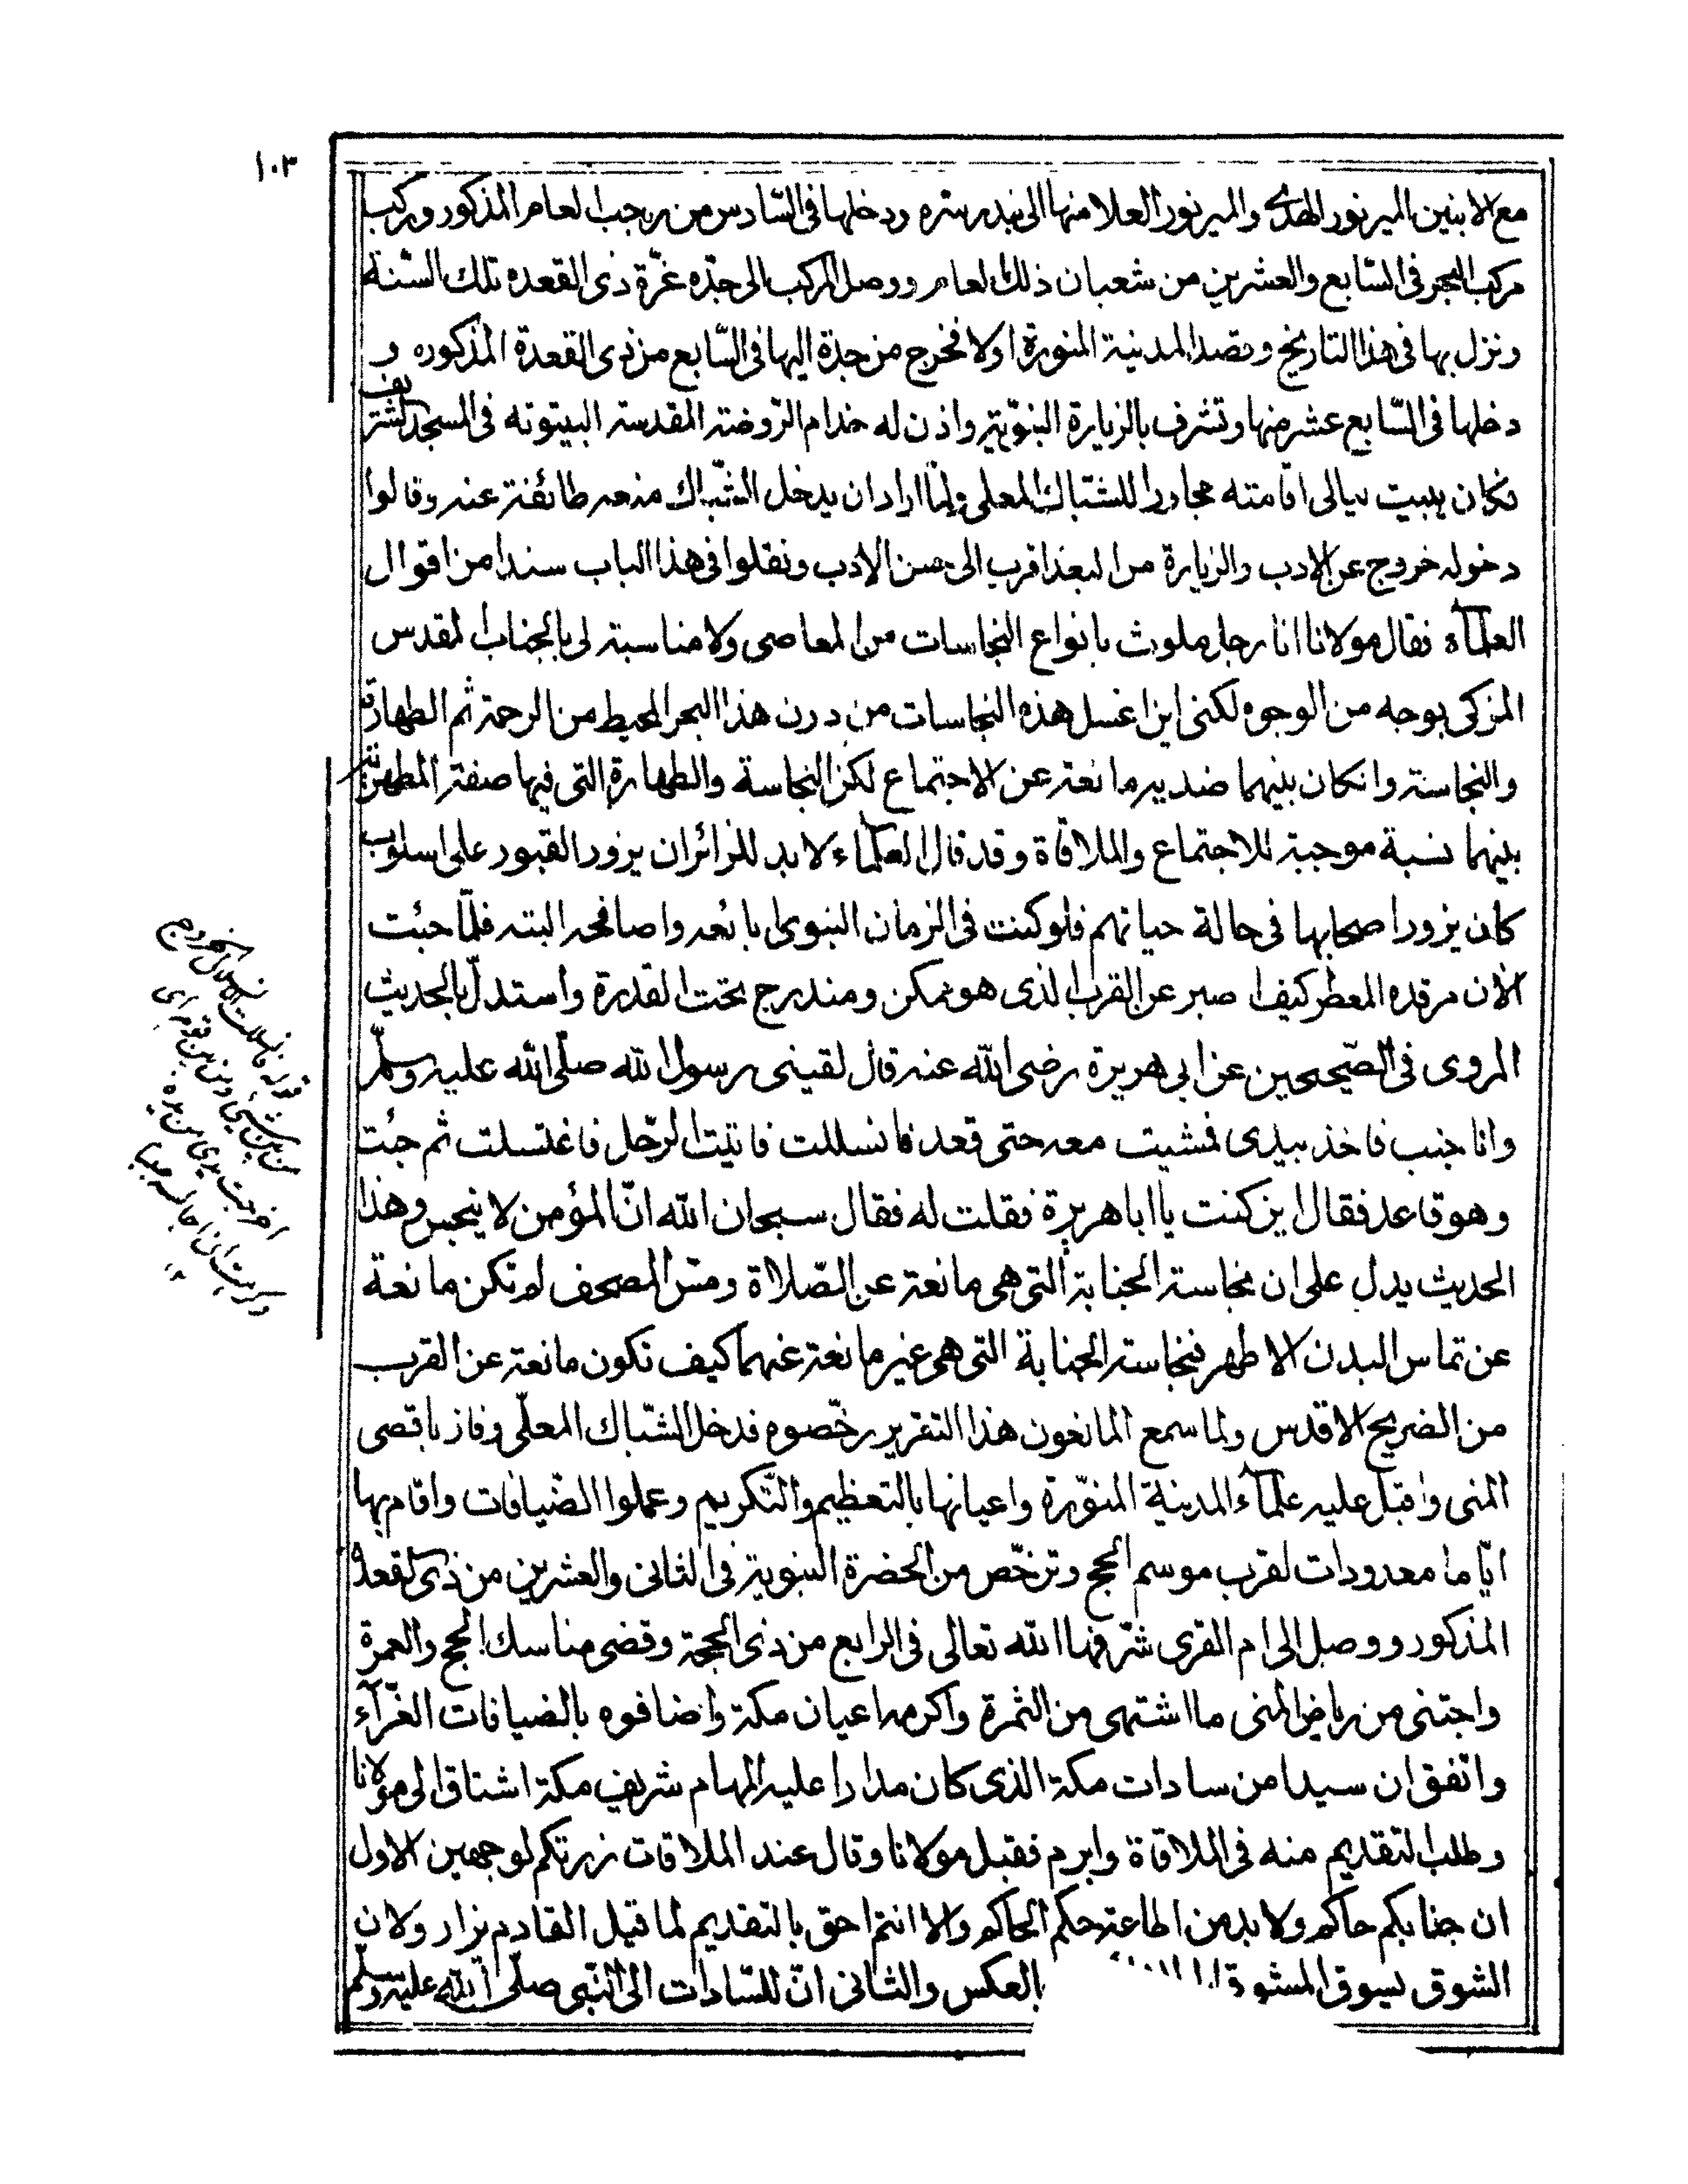 ١٠٣
مع الابنين المير نور الهدى والمير نور العلا منها الى بندر سرة ودخلها فى السّادس من رجب العام المذكور وركب
مركب البحر فى السّابع والعشرين من شعبان ذلك العام ووصل المركب الى جدّه غرّة ذى القعده تلك السّنة
ونزل بها فى هذا التاريخ وقصد المدينة المنورة اولا فخرج من جدة اليها فى السّابع من ذى القعدة المذكوره و
دخلها فى السّابع عشر منها وتشرف بالزيارة النبوّية واذن له خدام الرّوضة المقدسة البيتوته فى المسجد الشريف
فكان يبيت ليالى اقامته مجاورا للشبّاك المعلى ولمّا اراد ان يدخل الشبّاك منعه طائفة عنه وقالوا
دخوله خروج عن الادب والزيارة من البعد اقرب الى حسن الادب ونقلوا فى هذا الباب سندا من اقوال
العلمآء فقال مولانا انا رجل ملوث بانواع النجاسات من المعاصى ولا مناسبة لى بالجناب المقدس
المزكى بوجه من الوجوه لكنى اين اغسل هذه النجاسات من درن هذا البحر المحيط من الرحمة ثم الطهارة
والنجاسة وانكان بينهما ضديه مانعة عن الاجتماع لكن النجاسة والطهارة التى فيها صفة المطهرية
بينهما نسبة موجبة للاجتماع والملاقاة وقد قال العلماء لابد للزائر ان يزور القبور على اسلوب
كان يزور اصحابها فى حالة حياتهم فلو كنت فى الزمان النبوى ابايعه واصافحه البته فلمّا جئت
الآن مرقده المعطر كيف اصبر عن القرب الذى هو ممكن ومندرج تحت القدرة واستدلّ بالحديث
المروى فى الصّحيحين عن ابى هريرة رضى الله عنه قال لقينى رسول الله صلّى الله عليه وسلّم
وانا جنب فاخذ بيدى فمشيت معه حتى قعد فانسللت فاتيت الرّحل فاغتسلت ثم جئت
وهو قاعد فقال اين كنت يا ابا هريرة فقلت له فقال سبحان الله انّ المؤمن لا ينجس وهذا
الحديث يدل على ان نجاسة الجنابة التى هى مانعة عن الصّلاة ومسّ المصحف لم تكن مانعة
عن تماس البدن الاطهر فنجاسة الجنابة التى هى غير مانعة عنهما كيف تكون مانعة عن القرب
من الضريح الاقدس ولما سمع المانعون هذا التقرير رخّصوه فدخل الشبّاك المعلّى وفاز باقصى
المنى واقبل عليه علمآء المدينة المنوّرة واعيانها بالتعظيم والتّكريم وعملوا الضيافات واقام بها
ايّاما معدودات لقرب موسم الحج وترخّص من الحضرة النبوية فى الثانى والعشرين من ذى القعدة
المذكور ووصل الى ام القرى شرّفها الله تعالى فى الرابع من ذى الحجة وقضى مناسك الحج والعمرة
واجتنى من رياض المنى ما اشتهى من الثمرة واكرمه اعيان مكة واضافوه بالضيافات الغرّآء
واتّفق ان سيدا من سادات مكة الذى كان مدارا عليه المهام شريف مكة اشتاق الى مولانا
وطلب التقديم منه فى الملاقاة وابرم فقبل مولانا وقال عند الملاقات زرتكم لوجهين الاول
ان جنابكم حاكم ولا بد من اطاعة حكم الحاكم والا انتم احق بالتقديم لما قيل القادم يزار ولان
الشوق يسوق المشوق بالعكس والثانى انّ للسّادات الى النّبى صلّى الله عليه وسلّم
قوله فانسللت الانسلال الخروج
من بين شئ ومن بين قوم اى
اخرجت يدى من يده
وكرهت ان اجالسه جنبا
١٢